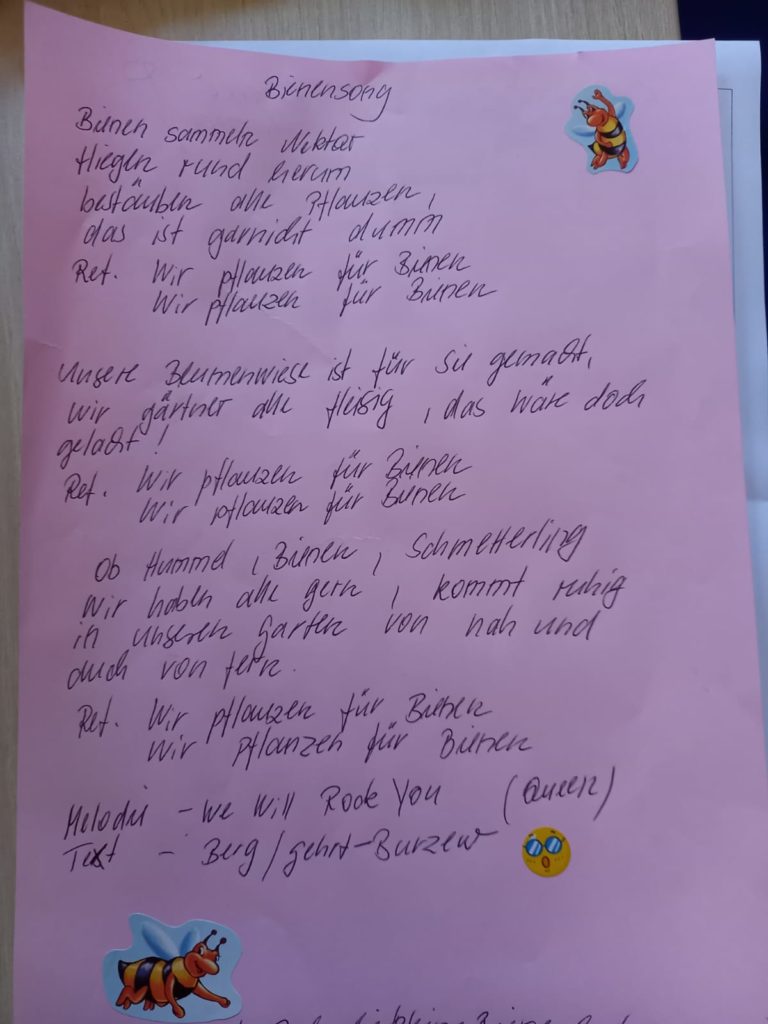 Bienensong
Bienen sammeln Nektar
fliegen rund herum
bestäuben alle Pflanzen,
das ist garnicht dumm
Ref. Wir pflanzen für Bienen
Wir pflanzen für Bienen
Unsere Blumenwiese ist für sie gemacht,
wir gärtner alle fleißig, das wäre doch
gelacht!
Ref. Wir pflanzen für Bienen
Wir pflanzen für Bienen
Ob Hummel, Bienen, Schmetterling
Wir haben alle gern, kommt ruhig
in unseren Garten von nah und
auch von fern.
Ref. Wir pflanzen für Bienen
Wir pflanzen für Bienen
Melodie - We Will Rock You (Queen)
Text - Berg/